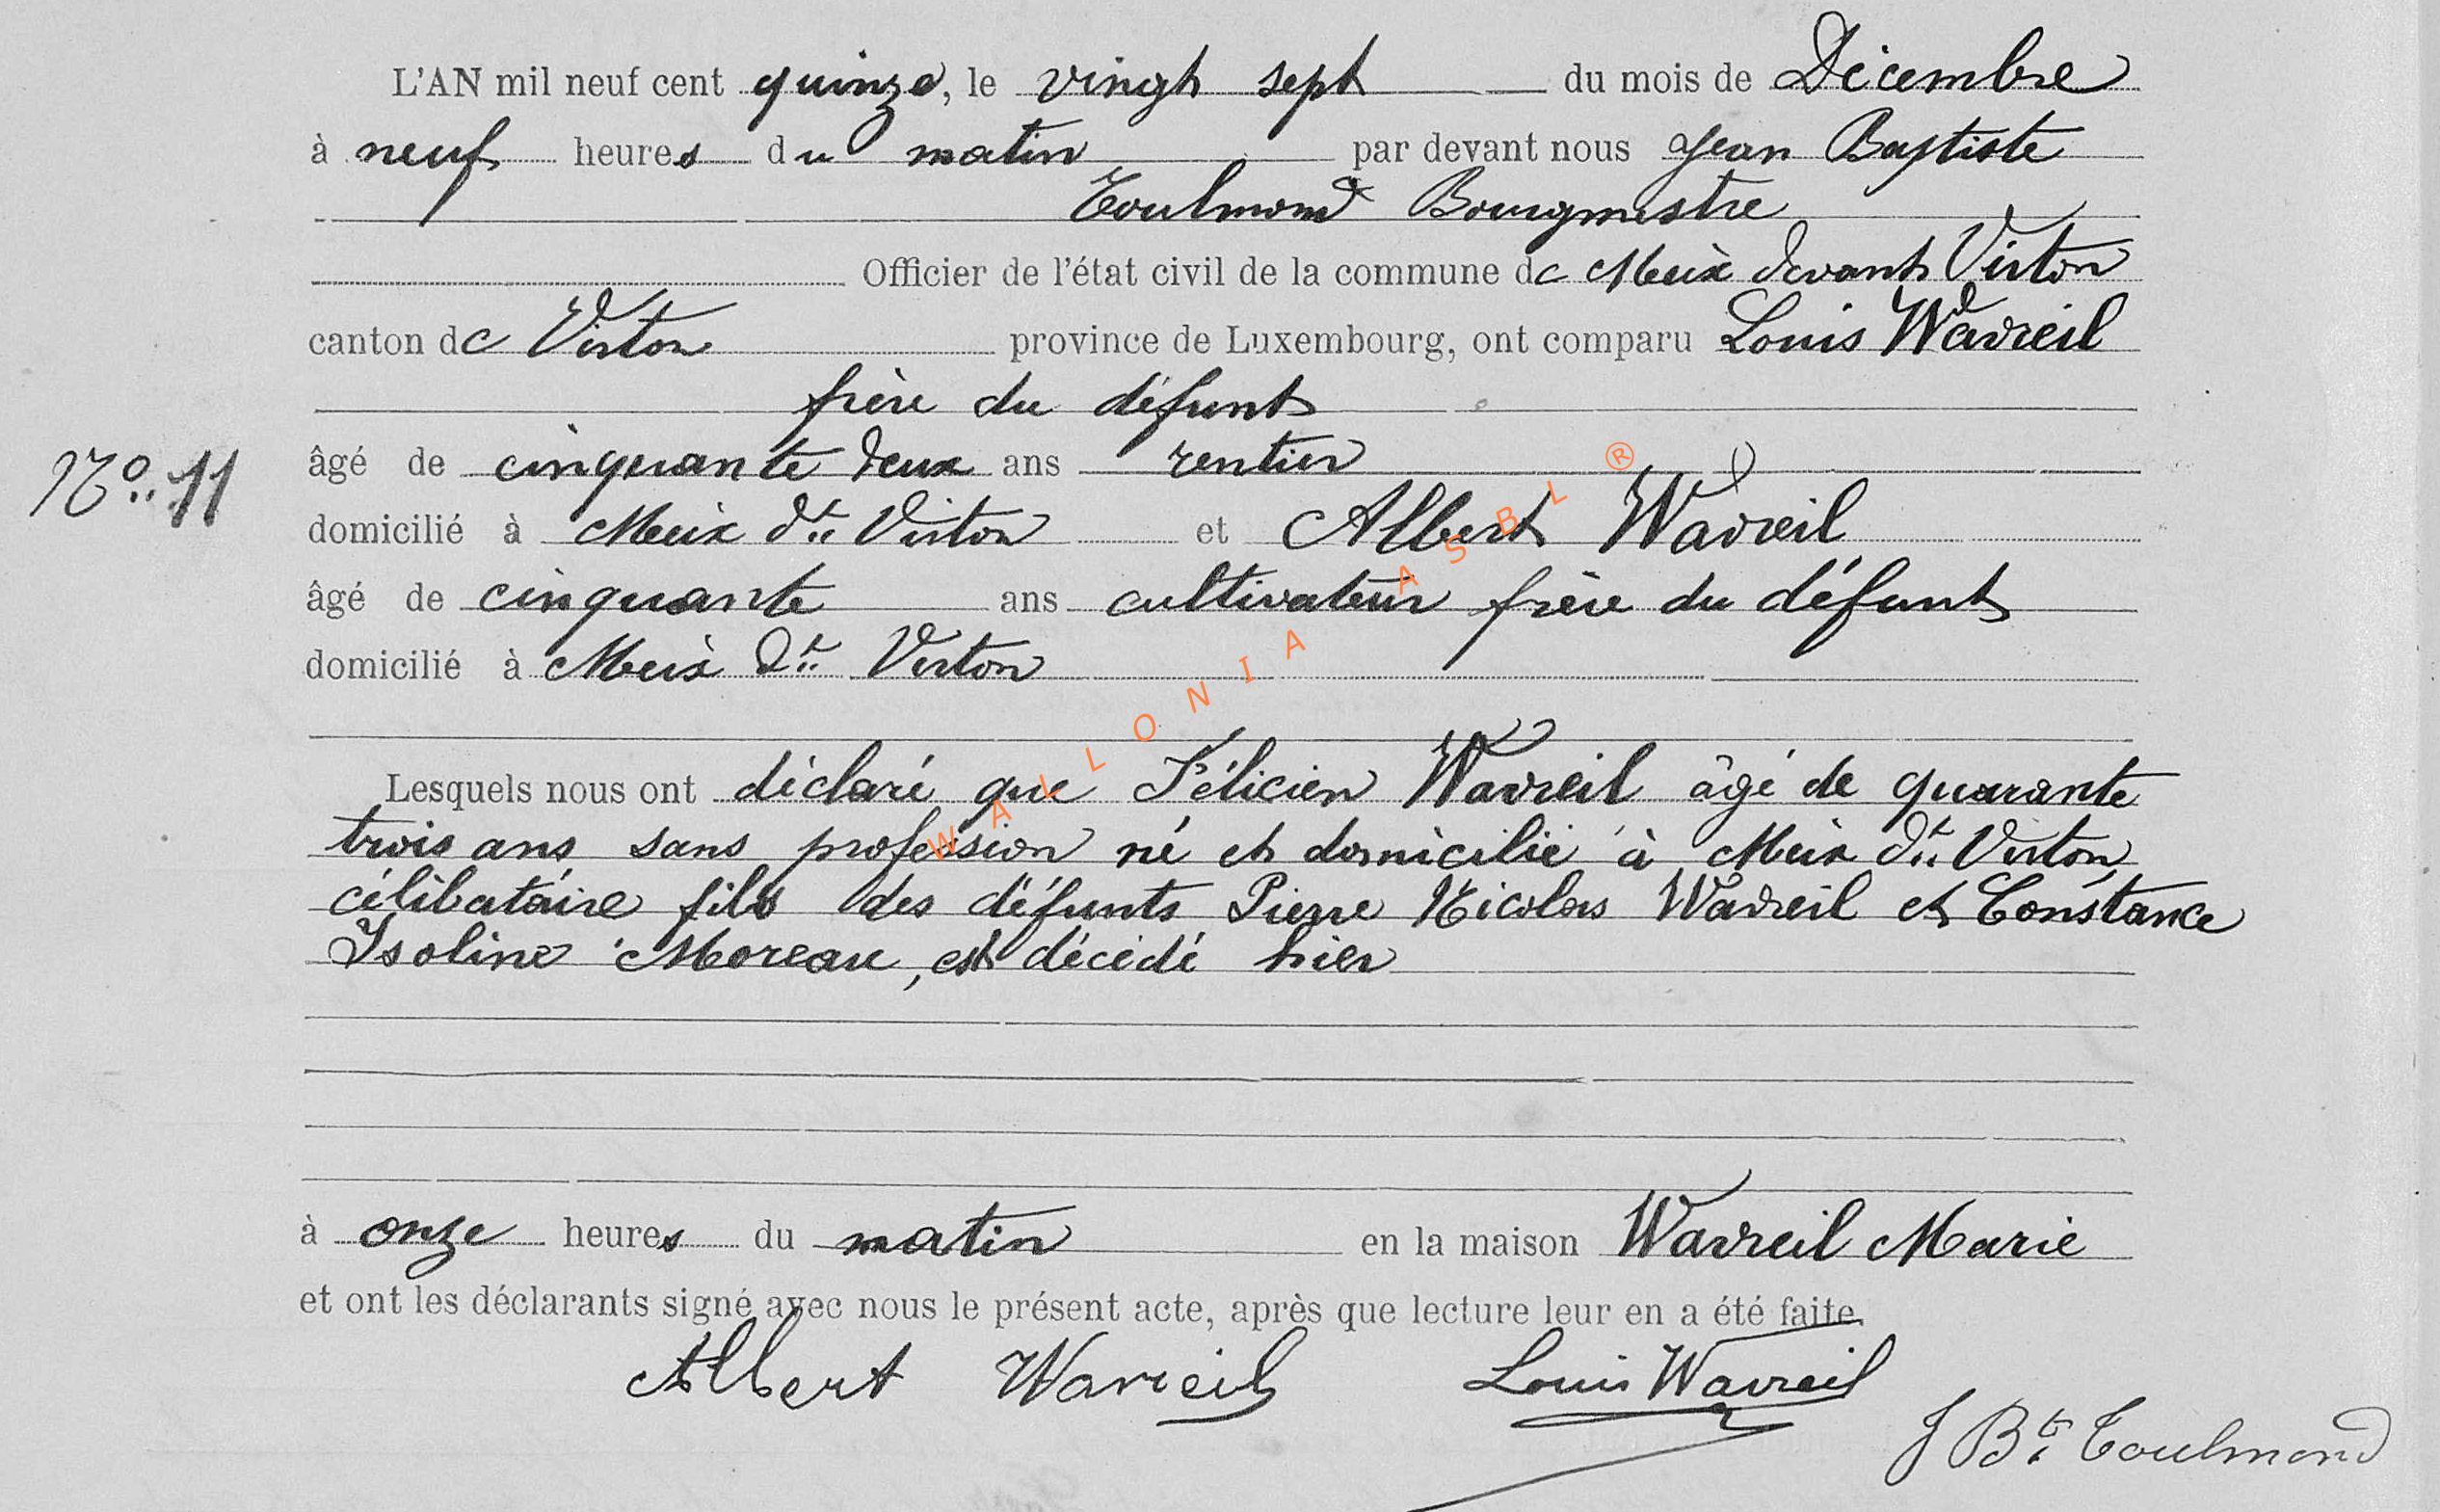 L'AN mil neuf cent quinze, le vingt sept du mois de Décembre
à neuf heures du matin par devant nous Jean Baptiste
Toulmond Bourgmestre
Officier de l'état civil de la commune de Meix devant Virton
canton de Virton province de Luxembourg, ont comparu Louis Wavreil
frère du défunt
N° 11
âgé de cinquante deux ans rentier
domicilié à Meix dt Virton et Albert Wavreil
âgé de cinquante ans cultivateur frère du défunt
domicilié à Meix dt Virton
Lesquels nous ont déclaré que Félicien Wavreil âgé de quarante
trois ans sans profession né et domicilié à Meix dt Virton,
célibataire fils des défunts Pierre Nicolas Wavreil et Constance
Isoline Moreau, est décédé hier
à onze heures du matin en la maison Wavreil Marie
et ont les déclarants signé avec nous le présent acte, après que lecture leur en a été faite.
Albert Wavreil Louis Wavreil
J Bte Toulmond
WALLONIA ASBL ®